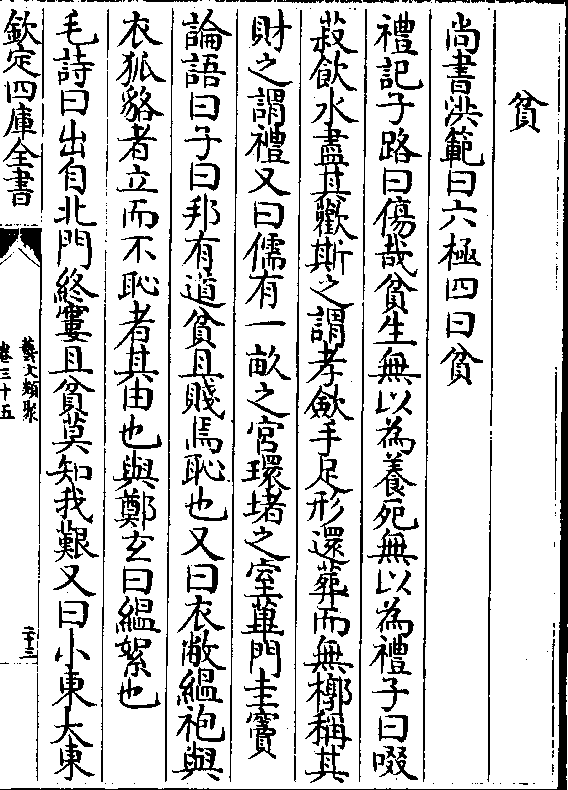 貧
尚書洪範曰六極四曰貧
禮記子路曰傷哉貧生無以為養死無以為禮子曰啜
菽飲水盡其歡斯之謂孝斂手足形還葬而無槨稱其
財之謂禮又曰儒有一畝之宫環堵之室蓽門圭竇
論語曰子曰邦有道貧且賤焉恥也又曰衣敝緼袍與
衣狐貉者立而不恥者其由也與鄭玄曰緼絮也
毛詩曰出自北門終窶且貧莫知我艱又曰小東大東
欽定四庫全書
藝文類聚
卷三十五
二十三